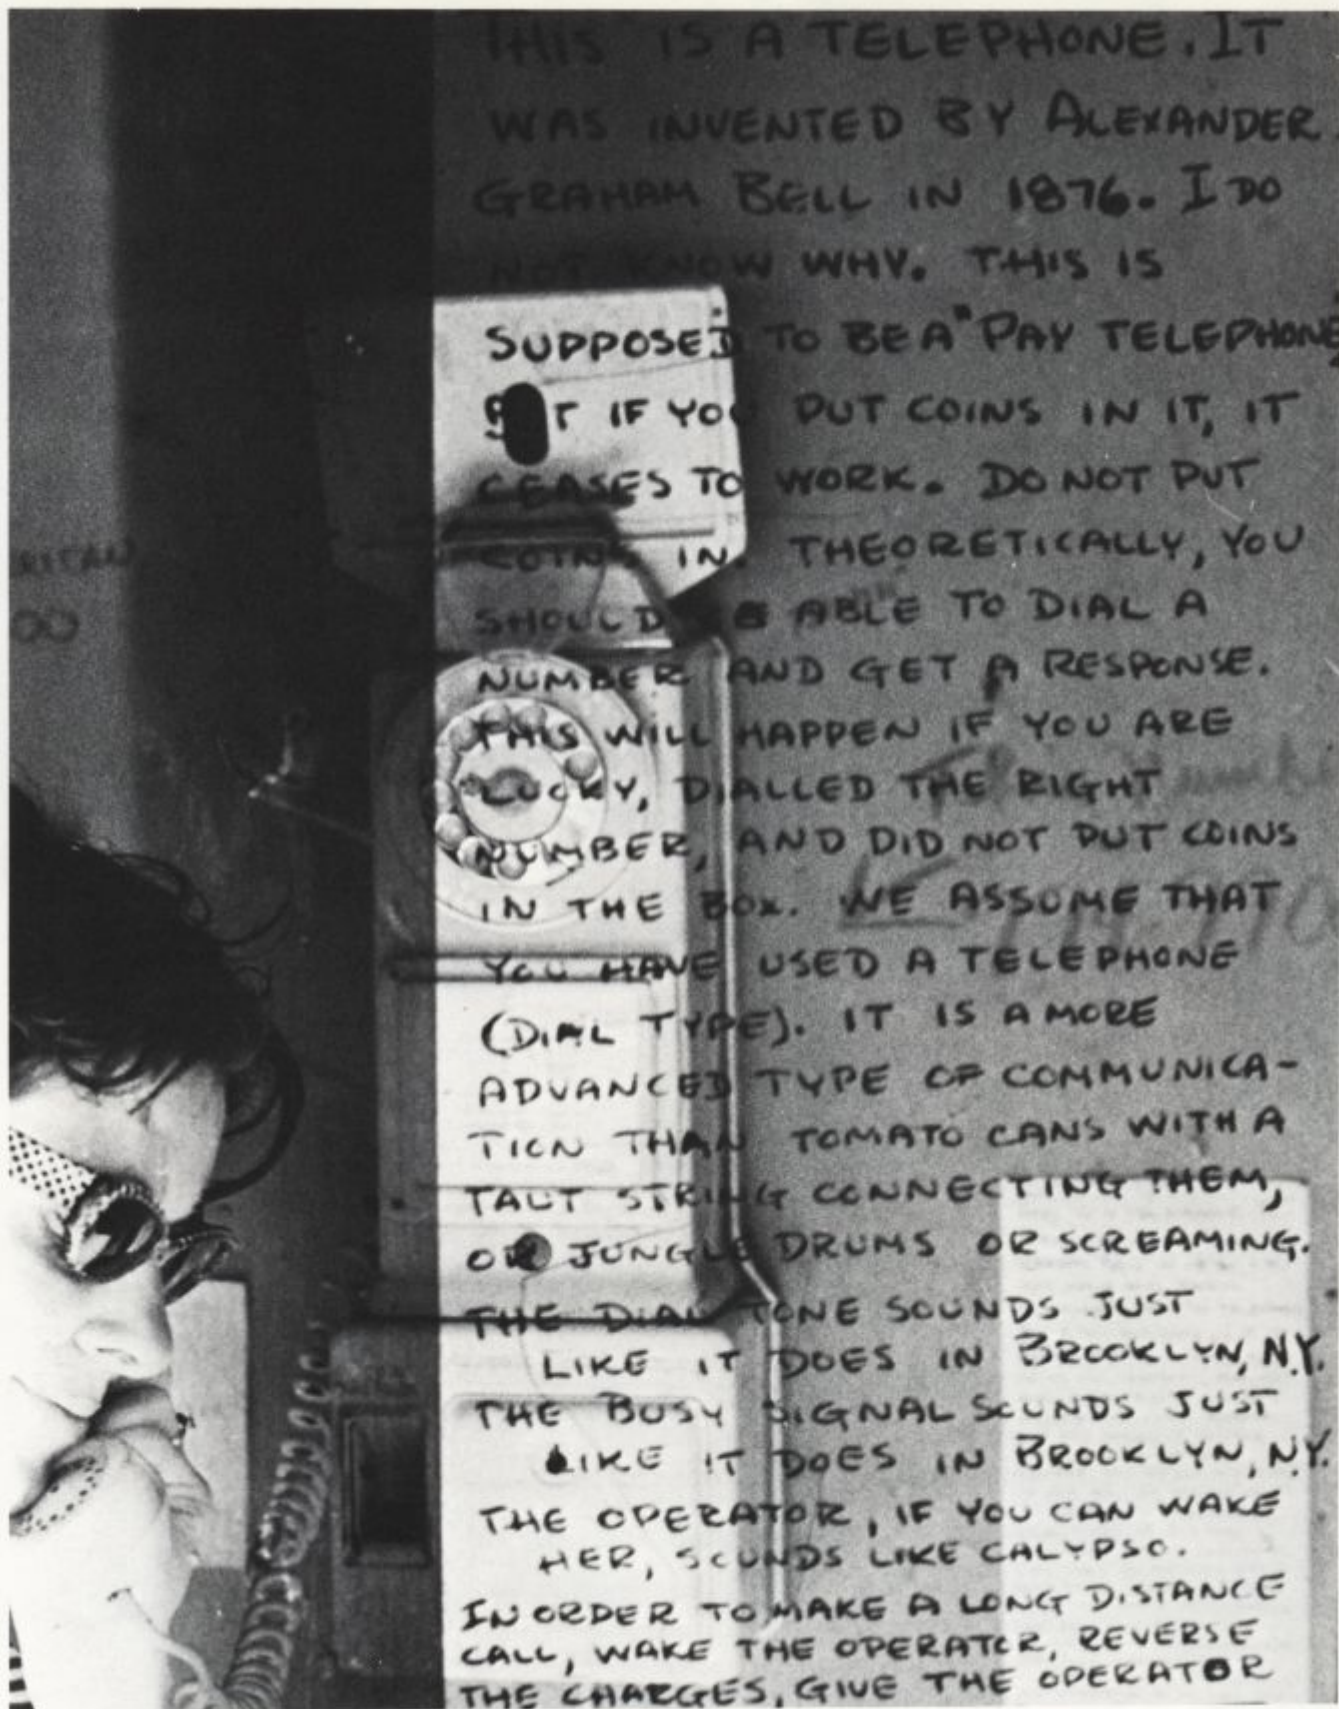 THIS IS A TELEPHONE. IT
WAS INVENTED BY ALEXANDER
GRAHAM BELL IN 1876. I DO
NOT KNOW WHY. THIS IS
SUPPOSED TO BE A "PAY TELEPHONE"
BUT IF YOU PUT COINS IN IT, IT
CEASES TO WORK. DO NOT PUT
COINS IN. THEORETICALLY, YOU
SHOULD BE ABLE TO DIAL A
NUMBER AND GET A RESPONSE.
THIS WILL HAPPEN IF YOU ARE
LUCKY, DIALLED THE RIGHT
NUMBER, AND DID NOT PUT COINS
IN THE BOX. WE ASSUME THAT
YOU HAVE USED A TELEPHONE
(DIAL TYPE). IT IS A MORE
ADVANCED TYPE OF COMMUNICA-
TION THAN TOMATO CANS WITH A
TAUT STRING CONNECTING THEM,
OR JUNGLE DRUMS OR SCREAMING.
THE DIAL TONE SOUNDS JUST
LIKE IT DOES IN BROOKLYN, N.Y.
THE BUSY SIGNAL SOUNDS JUST
LIKE IT DOES IN BROOKLYN, N.Y.
THE OPERATOR, IF YOU CAN WAKE
HER, SOUNDS LIKE CALYPSO.
IN ORDER TO MAKE A LONG DISTANCE
CALL, WAKE THE OPERATOR, REVERSE
THE CHARGES, GIVE THE OPERATOR